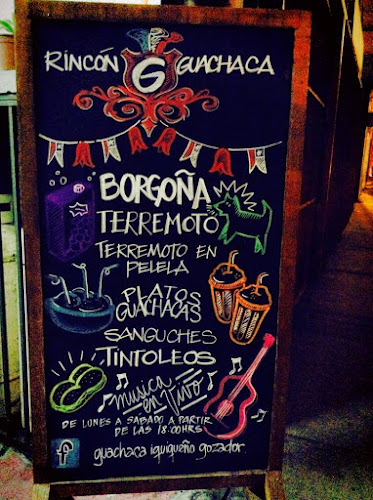 RINCÓN G GUACHACA
BORGOÑA
TERREMOTO
TERREMOTO EN
PELELA
PLATOS
GUACHACAS
SANGUCHES
TINTOLEOS
musica
en Vivo
DE LUNES A SABADO A PARTIR
DE LAS 18:00HRS
f guachaca iquiqueño gozador